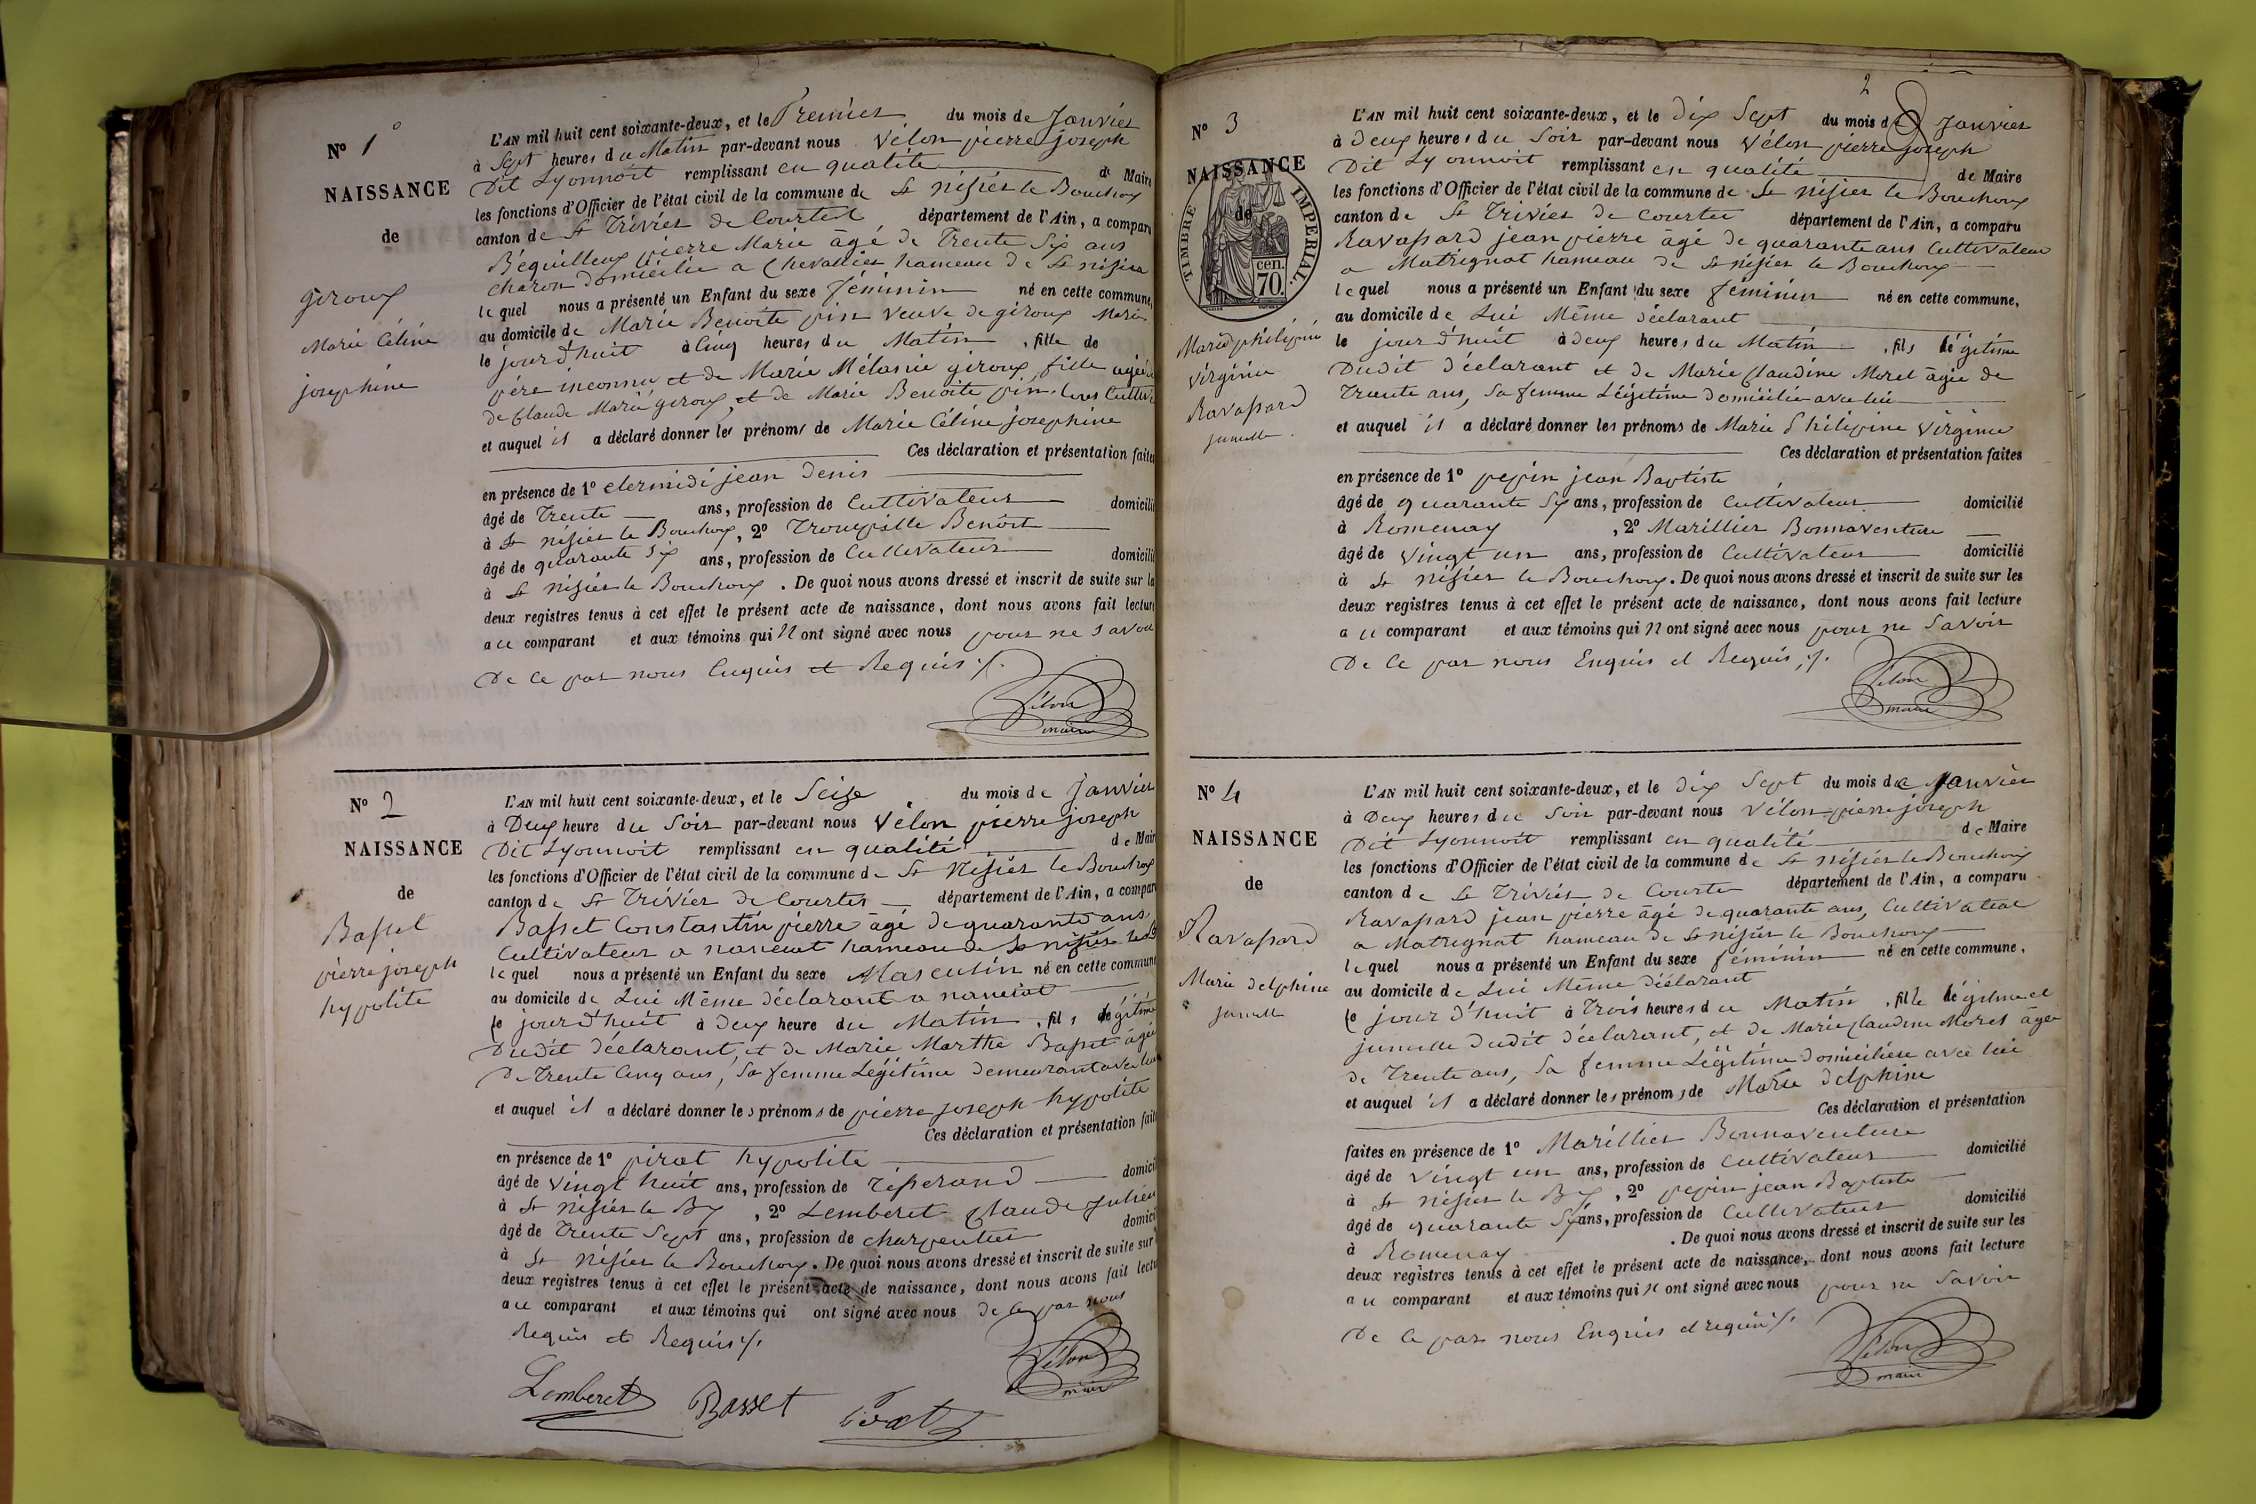 Nº 1º
NAISSANCE
de
giroux
Marie Céline
josephine
L'AN mil huit cent soixante-deux, et le Premier du mois de Janvier
à Sept heures du Matin par-devant nous Vélon pierre joseph
Dit Lyonnoit remplissant en qualité de Maire
les fonctions d'Officier de l'état civil de la commune de St Nisier le Bouchoux
canton de St Trivier de Courtes département de l'Ain, a comparu
Béquilleux pierre Marie âgé de Trente Six ans
charon domicilié a Chevallier hameau de St nisier
lequel nous a présenté un Enfant du sexe féminin né en cette commune,
au domicile de Marie Benoite pin veuve de giroux Marie
le jourd'huit à Cinq heures du Matin , fille de
père inconnu et de Marie Mélanie giroux, fille agée
de Claude Marie giroux, et de Marie Benoite pin.
et auquel il a déclaré donner les prénoms de Marie Céline josephine
Ces déclaration et présentation faites
en présence de 1º clermidi jean Denis
âgé de Trente ans, profession de Cultivateur domicilié
à St nisier le Bouchoux, 2º Benoit
âgé de quarante Six ans, profession de Cultivateur domicilié
à St Nisier le Bouchoux. De quoi nous avons dressé et inscrit de suite sur les
deux registres tenus à cet effet le présent acte de naissance, dont nous avons fait lecture
au comparant et aux témoins qui N ont signé avec nous pour ne Savoir
De Ce par nous Enquis et Requis ./.
Vélon
maire
Nº 2
NAISSANCE
de
Basset
pierre joseph
hypolite
L'AN mil huit cent soixante-deux, et le Seize du mois de Janvier
à Deux heure du Soir par-devant nous Vélon pierre joseph
Dit Lyonnoit remplissant en qualité de Maire
les fonctions d'Officier de l'état civil de la commune de St Nisier le Bouchoux
canton de St Trivier de Courtes département de l'Ain, a comparu
Basset Constantin pierre âgé de quarante ans
Cultivateur a hameau de St nisier le
lequel nous a présenté un Enfant du sexe Masculin né en cette commune
au domicile de Lui Même déclarant a
le jourd'huit à Deux heure du Matin , fils légitime
Dudit déclarant, et de Marie Marthe Basset âgée
De Trente Cinq ans, Sa femme Légitime demeurant avec lui
et auquel il a déclaré donner les prénoms de pierre joseph hypolite
Ces déclaration et présentation faites
en présence de 1º pirat hypolite
âgé de vingt huit ans, profession de Tisserand domicilié
à St nisier le Bx, 2º Lemberet Claude Julien
âgé de Trente Sept ans, profession de charpentier domicilié
à St Nisier le Bouchoux. De quoi nous avons dressé et inscrit de suite sur
deux registres tenus à cet effet le présent acte de naissance, dont nous avons fait lecture
au comparant et aux témoins qui ont signé avec nous de ce par nous
Requis et Requis ./.
Vélon
maire
Lemberet Basset Pirat
2
Nº 3
NAISSANCE
de
TIMBRE IMPERIAL.
cen.
70.
Marie philipine
virginie
Ravassard
jumelle.
L'AN mil huit cent soixante-deux, et le dix Sept du mois de Janvier
à Deux heures du Soir par-devant nous Vélon pierre joseph
Dit Lyonnoit remplissant en qualité de Maire
les fonctions d'Officier de l'état civil de la commune de St Nisier le Bouchoux
canton de St Trivier de Courtes département de l'Ain, a comparu
Ravassard jean pierre âgé de quarante ans Cultivateur
a Matrignat hameau de St nisier le Bouchoux
lequel nous a présenté un Enfant du sexe féminin né en cette commune,
au domicile de Lui Même déclarant
le jourd'huit à deux heures du Matin , fils légitime
Dudit déclarant et de Marie Claudine Morel âgée de
Trante ans, Sa femme Légitime domiciliée avec lui
et auquel il a déclaré donner les prénoms de Marie Philipine Virginie
Ces déclaration et présentation faites
en présence de 1º pepin jean Baptiste
âgé de quarante Sx ans, profession de Cultivateur domicilié
à Romenay , 2º Marillier Bonnaventure
âgé de vingt un ans, profession de Cultivateur domicilié
à St nisier le Bouchoux. De quoi nous avons dressé et inscrit de suite sur les
deux registres tenus à cet effet le présent acte de naissance, dont nous avons fait lecture
au comparant et aux témoins qui N ont signé avec nous pour ne Savoir
De Ce par nous Enquis et Requis ./.
Vélon
maire
Nº 4
NAISSANCE
de
Ravassard
Marie delphine
jumelle
L'AN mil huit cent soixante-deux, et le dix Sept du mois de Janvier
à Deux heures du Soir par-devant nous Vélon pierre joseph
Dit Lyonnoit remplissant en qualité de Maire
les fonctions d'Officier de l'état civil de la commune de St Nisier le Bouchoux
canton de St Trivier de Courtes département de l'Ain, a comparu
Ravassard jean pierre âgé de quarante ans, Cultivateur
a Matrignat hameau de St nisier le Bouchoux
lequel nous a présenté un Enfant du sexe féminin né en cette commune,
au domicile de Lui Même déclarant
le jourd'huit à Trois heures du Matin , fille légitime et
jumelle dudit déclarant, et de Marie Claudine Morel âgée
de Trente ans, Sa femme Légitime domiciliée avec lui
et auquel il a déclaré donner les prénoms de Marie delphine
Ces déclaration et présentation
faites en présence de 1º Marillier Bonnaventure
âgé de vingt un ans, profession de Cultivateur domicilié
à St nisier le Bx, 2º pepin jean Baptiste
âgé de quarante Sx ans, profession de Cultivateur domicilié
à Romenay . De quoi nous avons dressé et inscrit de suite sur les
deux registres tenus à cet effet le présent acte de naissance, dont nous avons fait lecture
au comparant et aux témoins qui N ont signé avec nous pour ne Savoir
De Ce par nous Enquis et requis ./.
Vélon
maire